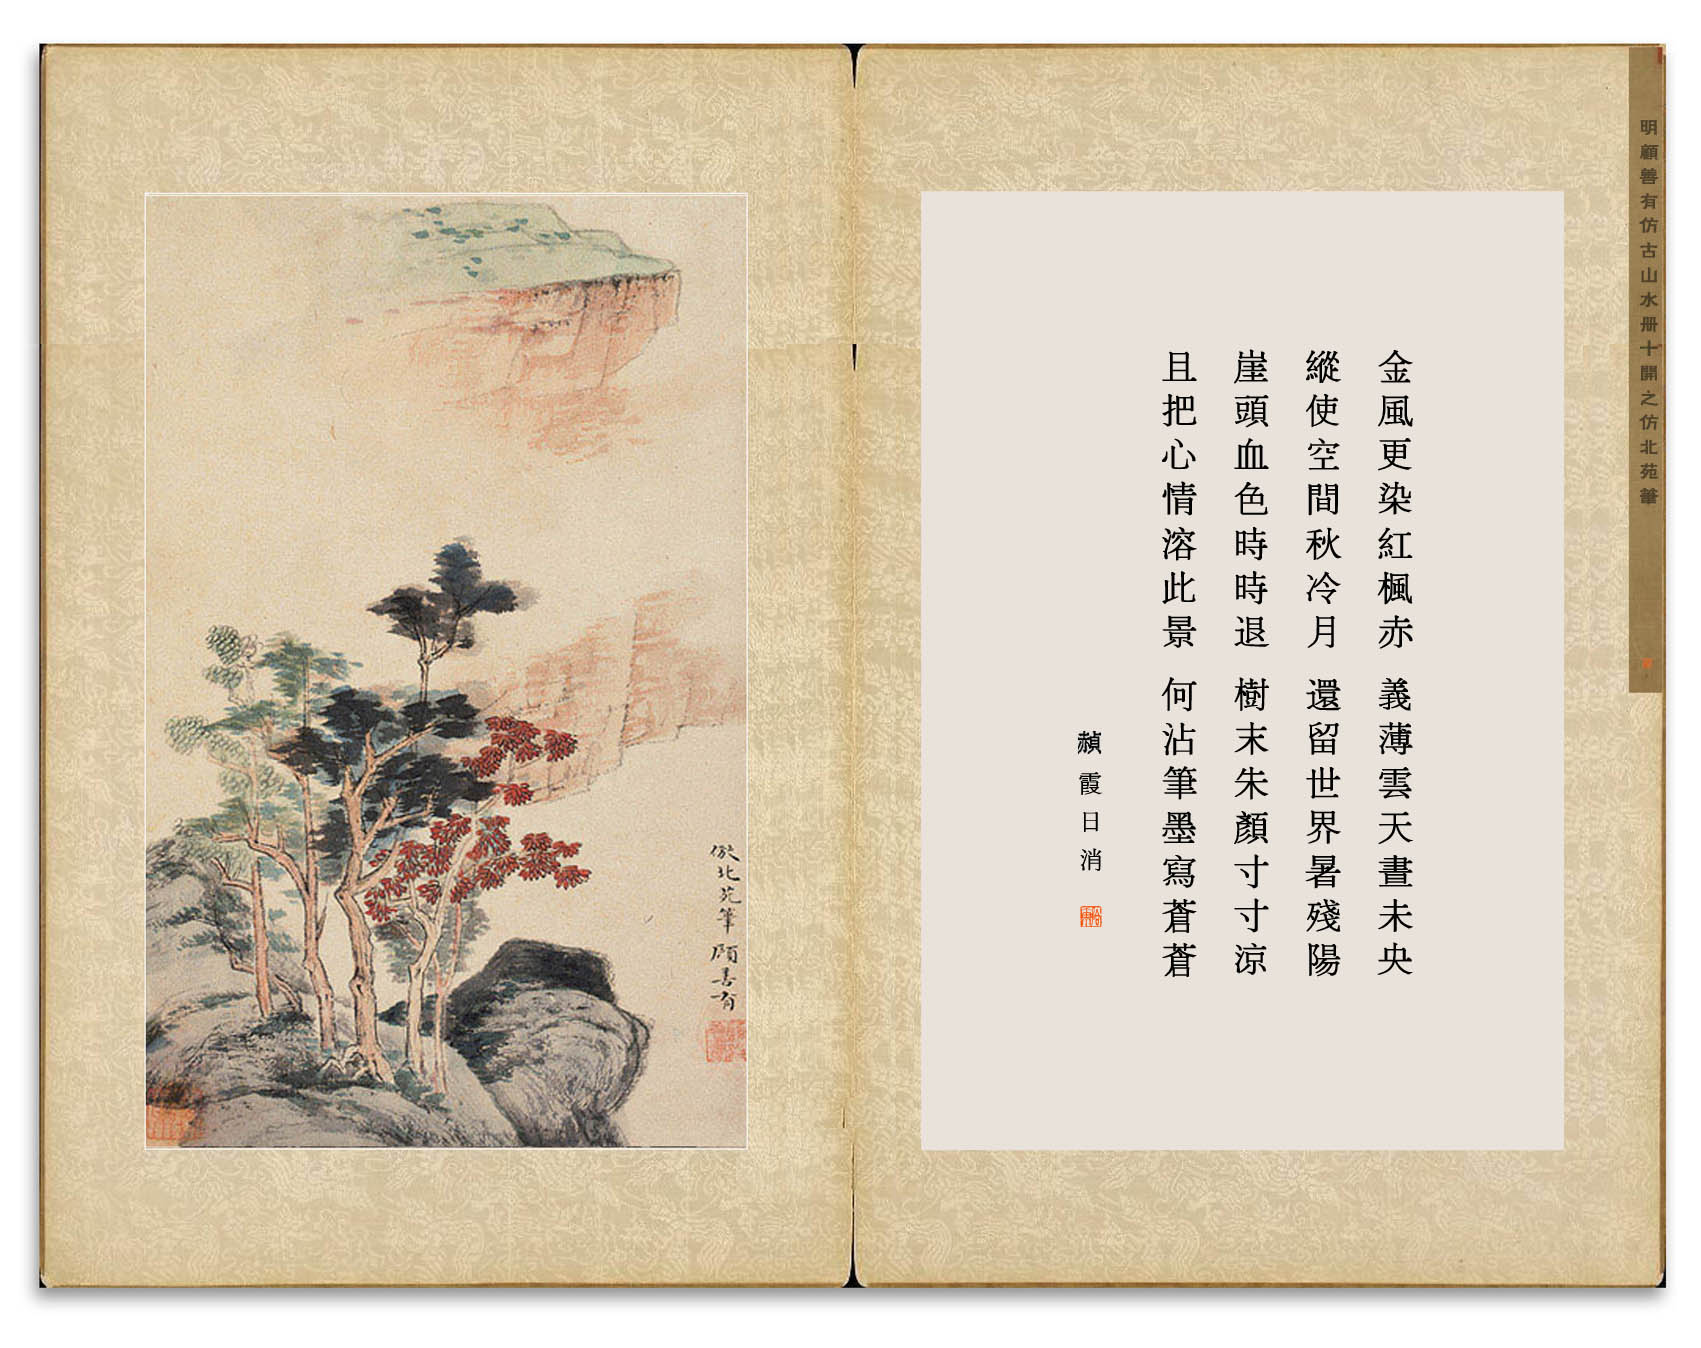 明顧善有仿古山水冊十開之仿北苑筆
金風更染紅楓赤 義薄雲天晝未央
縱使空間秋冷月 還留世界暑殘陽
崖頭血色時時退 樹末朱顏寸寸涼
且把心情溶此景 何沾筆墨寫蒼蒼
赬霞日消
倣北苑筆 顧善有